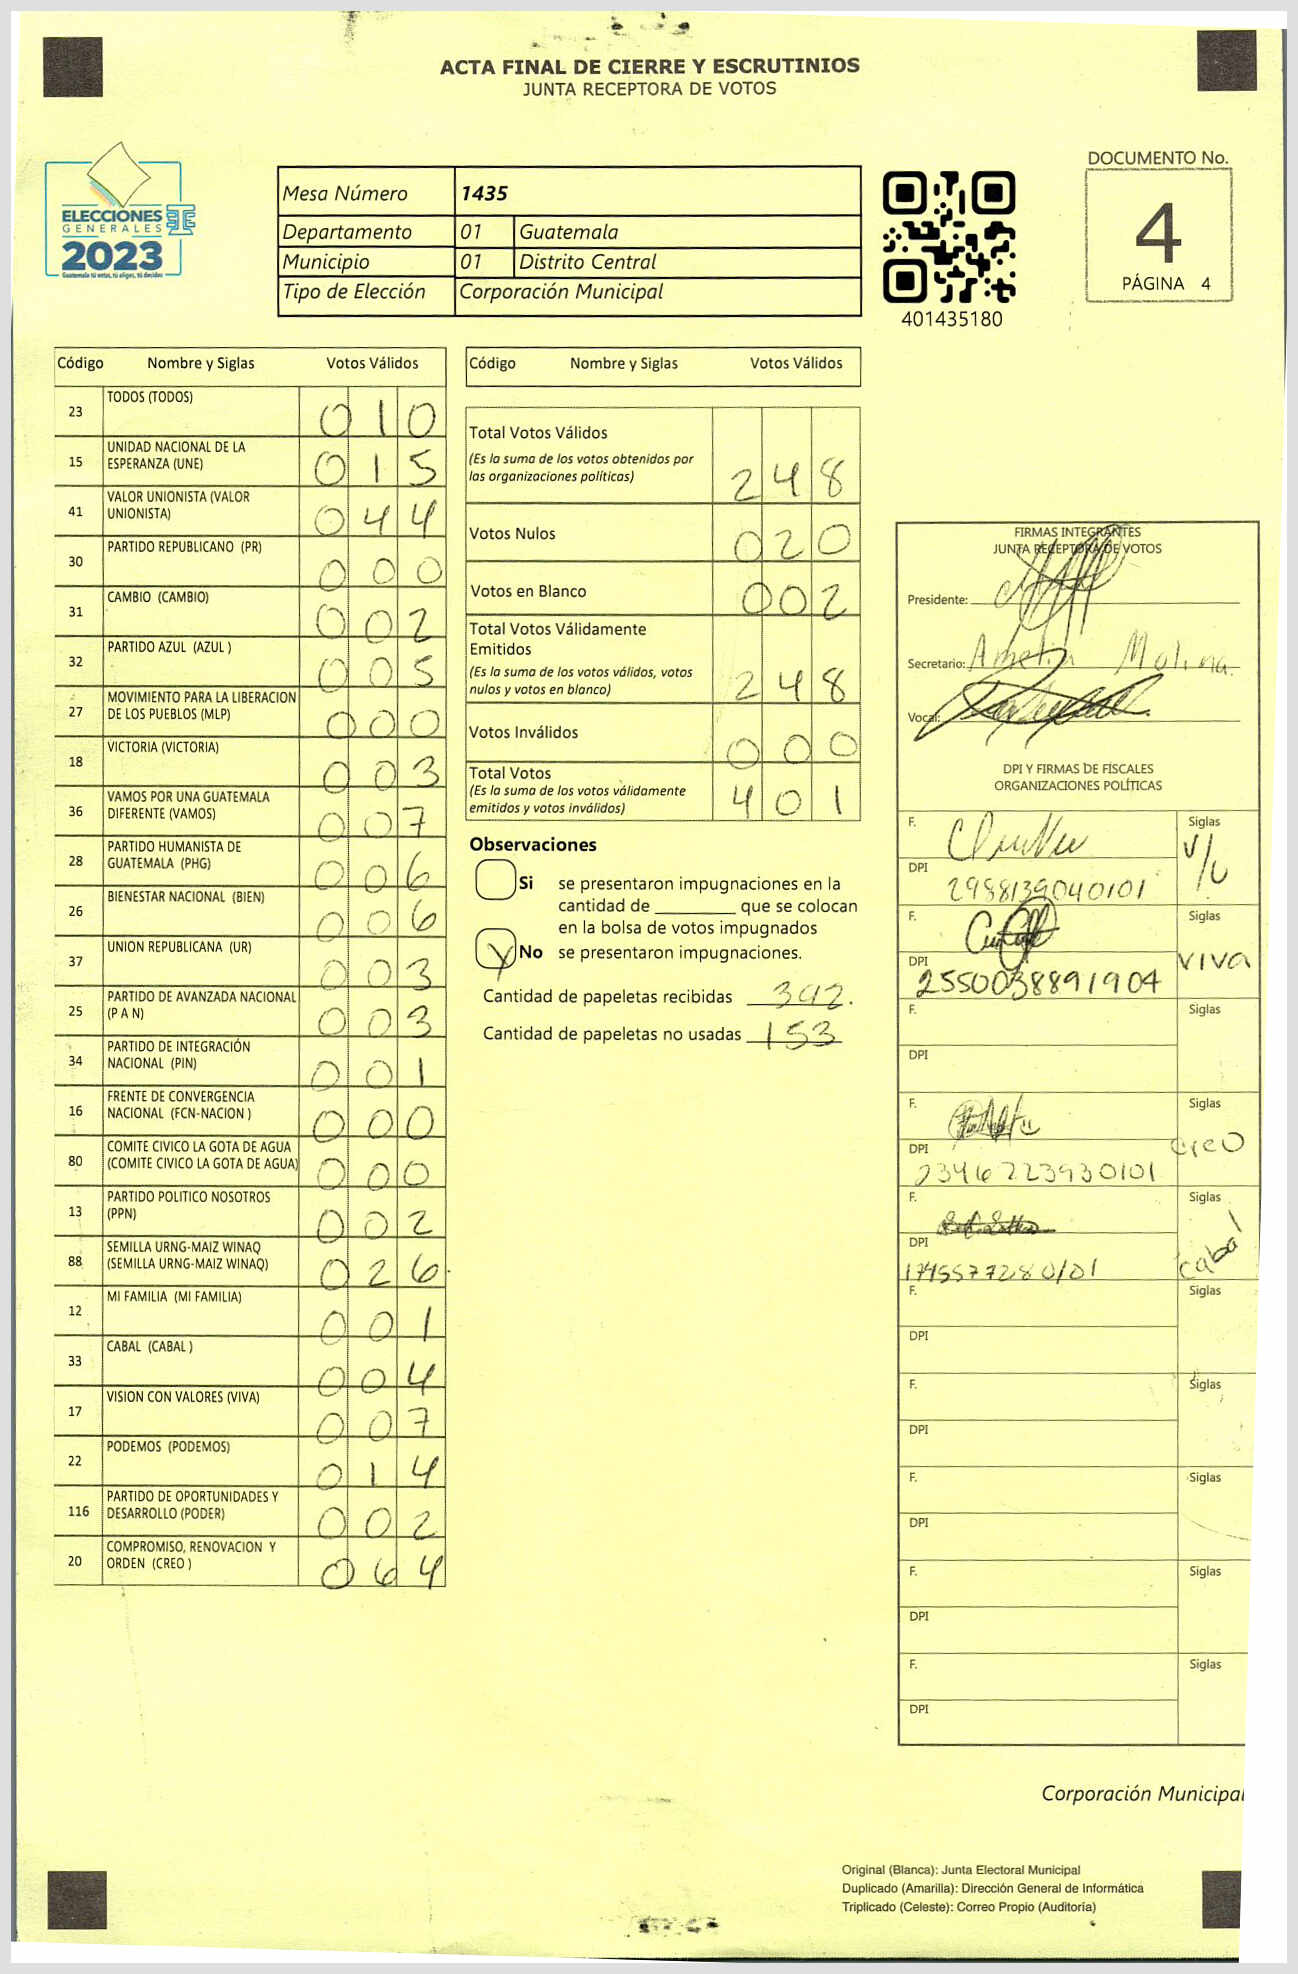 ACTA FINAL DE CIERRE Y ESCRUTINIOS
JUNTA RECEPTORA DE VOTOS
ELECCIONES
GENERALES
2023
Guatemala tú votas, tú eliges, tú decides
Mesa Número 1435
Departamento 01 Guatemala
Municipio 01 Distrito Central
Tipo de Elección Corporación Municipal
401435180
DOCUMENTO No.
4
PÁGINA 4
Código Nombre y Siglas Votos Válidos
23 TODOS (TODOS) 0 1 0
15 UNIDAD NACIONAL DE LA
ESPERANZA (UNE) 0 1 5
41 VALOR UNIONISTA (VALOR
UNIONISTA) 0 4 4
30 PARTIDO REPUBLICANO (PR) 0 0 0
31 CAMBIO (CAMBIO) 0 0 2
32 PARTIDO AZUL (AZUL ) 0 0 5
27 MOVIMIENTO PARA LA LIBERACION
DE LOS PUEBLOS (MLP) 0 0 0
18 VICTORIA (VICTORIA) 0 0 3
36 VAMOS POR UNA GUATEMALA
DIFERENTE (VAMOS) 0 0 7
28 PARTIDO HUMANISTA DE
GUATEMALA (PHG) 0 0 6
26 BIENESTAR NACIONAL (BIEN) 0 0 6
37 UNION REPUBLICANA (UR) 0 0 3
25 PARTIDO DE AVANZADA NACIONAL
(P A N) 0 0 3
34 PARTIDO DE INTEGRACIÓN
NACIONAL (PIN) 0 0 1
16 FRENTE DE CONVERGENCIA
NACIONAL (FCN-NACION ) 0 0 0
80 COMITE CIVICO LA GOTA DE AGUA
(COMITE CIVICO LA GOTA DE AGUA) 0 0 0
13 PARTIDO POLITICO NOSOTROS
(PPN) 0 0 2
88 SEMILLA URNG-MAIZ WINAQ
(SEMILLA URNG-MAIZ WINAQ) 0 2 6
12 MI FAMILIA (MI FAMILIA) 0 0 1
33 CABAL (CABAL ) 0 0 4
17 VISION CON VALORES (VIVA) 0 0 7
22 PODEMOS (PODEMOS) 0 1 4
116 PARTIDO DE OPORTUNIDADES Y
DESARROLLO (PODER) 0 0 2
20 COMPROMISO, RENOVACION Y
ORDEN (CREO ) 0 6 4
Código Nombre y Siglas Votos Válidos
Total Votos Válidos
(Es la suma de los votos obtenidos por
las organizaciones políticas) 2 4 8
Votos Nulos 0 2 0
Votos en Blanco 0 0 2
Total Votos Válidamente
Emitidos
(Es la suma de los votos válidos, votos
nulos y votos en blanco) 2 4 8
Votos Inválidos 0 0 0
Total Votos
(Es la suma de los votos válidamente
emitidos y votos inválidos) 4 0 1
Observaciones
Si se presentaron impugnaciones en la
cantidad de ________ que se colocan
en la bolsa de votos impugnados
No se presentaron impugnaciones.
Cantidad de papeletas recibidas 392.
Cantidad de papeletas no usadas 153
FIRMAS INTEGRANTES
JUNTA RECEPTORA DE VOTOS
Presidente:
Secretario: Molina.
Vocal:
DPI Y FIRMAS DE FISCALES
ORGANIZACIONES POLÍTICAS
F. Siglas
V/U
DPI
2988139040101
F. Siglas
VIVA
DPI
2550038891904
F. Siglas
DPI
F. Siglas
creo
DPI
23467223930101
F. Siglas
cabal
DPI
1745577280101
F. Siglas
DPI
F. Siglas
DPI
F. Siglas
DPI
F. Siglas
DPI
F. Siglas
DPI
Corporación Municipal
Original (Blanca): Junta Electoral Municipal
Duplicado (Amarilla): Dirección General de Informática
Triplicado (Celeste): Correo Propio (Auditoría)